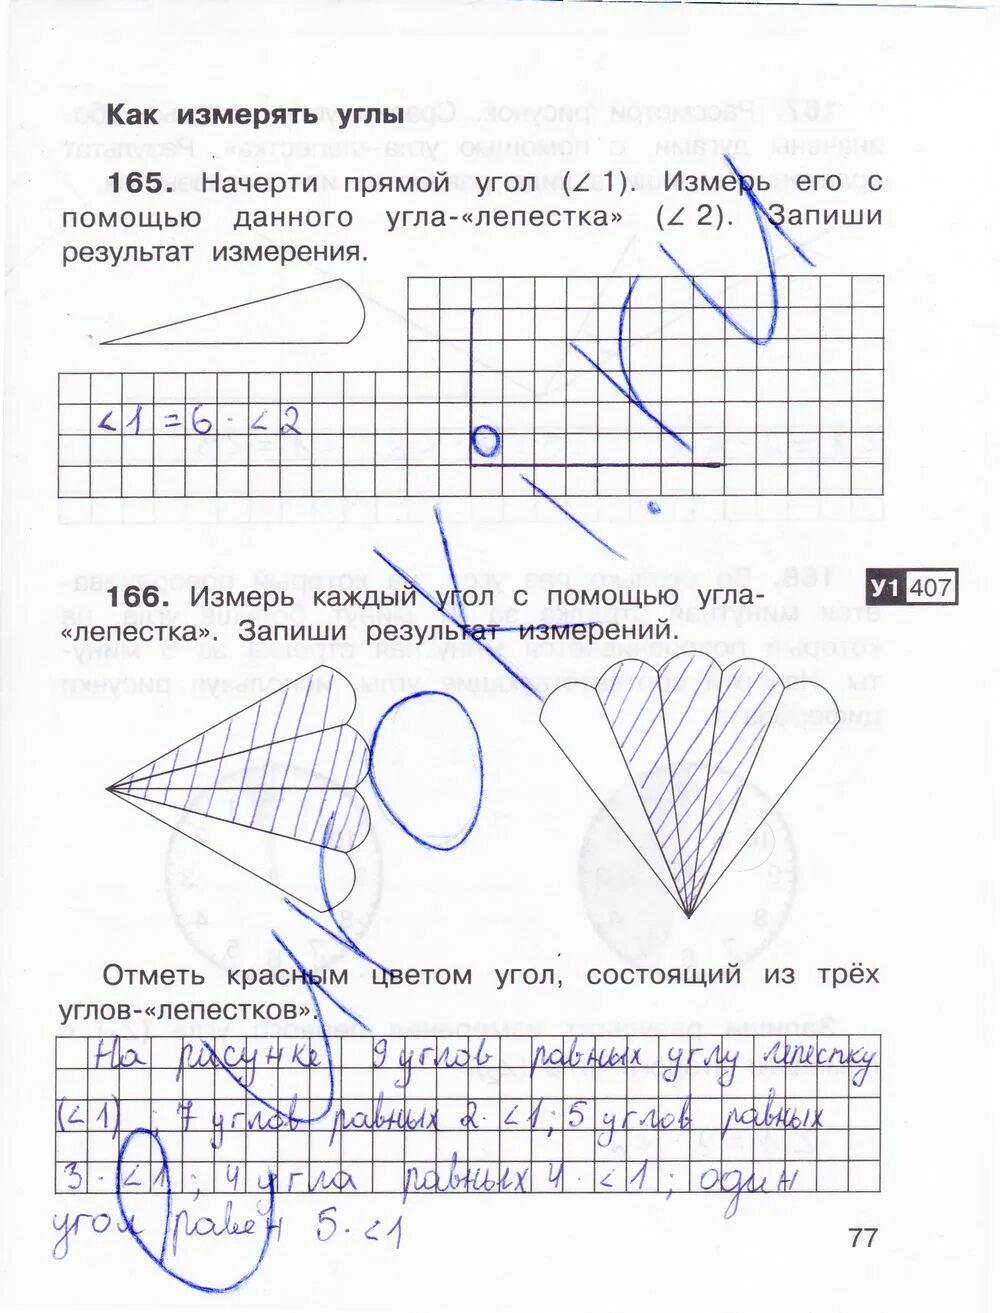 Как измерять углы
165. Начерти прямой угол (∠ 1). Измерь его с
помощью данного угла-«лепестка» (∠ 2). Запиши
результат измерения.
∠1 = 6 · ∠2
166. Измерь каждый угол с помощью угла-
«лепестка». Запиши результат измерений.
У1 407
Отметь красным цветом угол, состоящий из трёх
углов-«лепестков».
На рисунке 9 углов равных углу лепестку
(∠1) ; 7 углов равных 2 · ∠1; 5 углов равных
3 · ∠1 ; 4 угла равных 4 · ∠1 ; один
угол равен 5 · ∠1
77